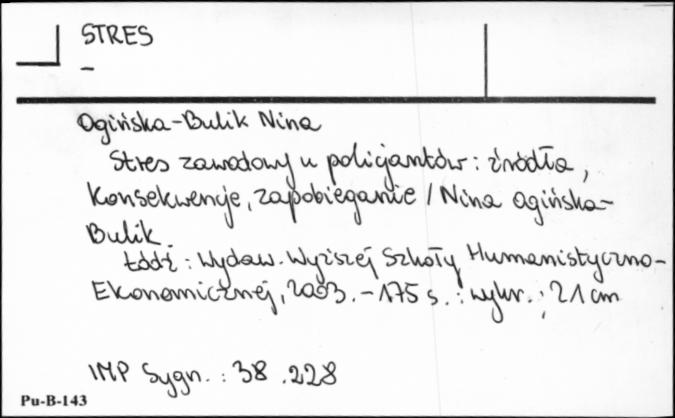 STRES
–
Ogińska-Bulik Nina
Stres zawodowy u policjantów : źródła,
konsekwencje, zapobieganie / Nina Ogińska-
Bulik.
Łódź : Wydaw. Wyższej Szkoły Humanistyczno-
Ekonomicznej, 2003. - 175 s. : wykr. ; 21 cm
IMP Sygn. : 38.228
Pu-B-143